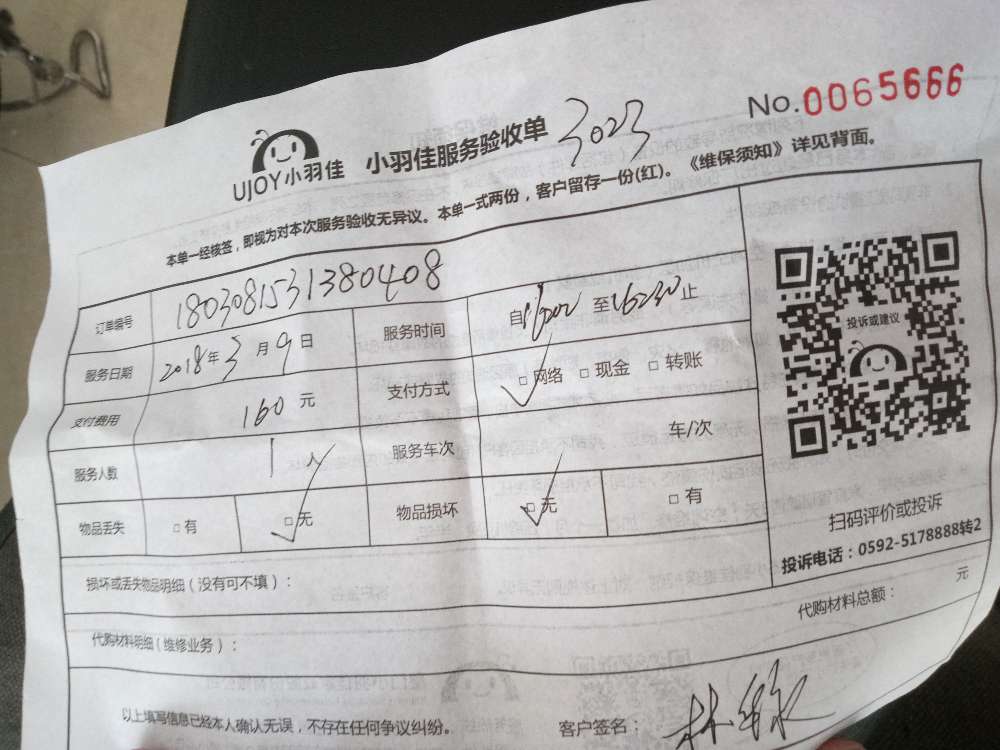 No.0065666
UJOY小羽佳 小羽佳服务验收单 3023
本单一经核签，即视为对本次服务验收无异议。本单一式两份，客户留存一份(红)。《维保须知》详见背面。
订单编号 1803081531380408
服务日期 2018年3月9日 服务时间 自 至 止
支付费用 160元 支付方式 □网络 □现金 □转账
服务人数 1人 服务车次 车/次
物品丢失 □有 □无 物品损坏 □无 □有
投诉或建议
扫码评价或投诉
投诉电话：0592-5178888转2
损坏或丢失物品明细（没有可不填）：
代购材料明细（维修业务）： 代购材料总额： 元
以上填写信息已经本人确认无误，不存在任何争议纠纷。 客户签名：林